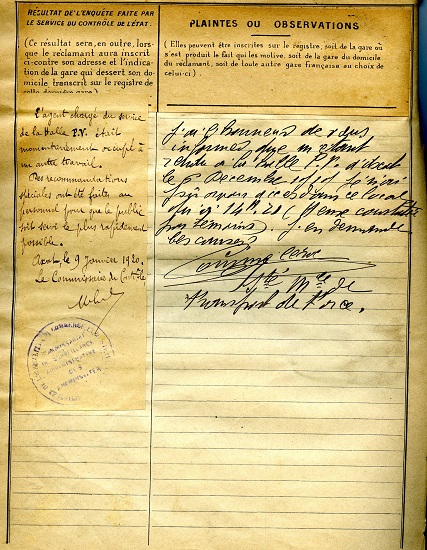 RÉSULTAT DE L'ENQUÊTE FAITE PAR
LE SERVICE DU CONTRÔLE DE L'ÉTAT.
(Ce résultat sera, en outre, lors-
que le réclamant aura inscrit
ci-contre son adresse et l'indica-
tion de la gare qui dessert son do-
micile transcrit sur le registre de
cette dernière gare.)
L'agent chargé du service
de la salle P.V. était
momentanément occupé à
un autre travail.
Des recommandations
spéciales ont été faites au
personnel pour que le public
soit servi le plus rapidement
possible.
Axat, le 9 Janvier 1920.
Le Commissaire du Contrôle
PLAINTES ou OBSERVATIONS
(Elles peuvent être inscrites sur le registre, soit de la gare où
s'est produit le fait qui les motive, soit de la gare du domicile
du réclamant, soit de toute autre gare française au choix de
celui-ci.)
J'ai l'honneur de vous
informer, que m'étant
rendu à la salle P.V. d'Axat
le Décembre 1919
dans ce local
qu'à 14h 20 (
par témoins). J'en demande
les causes
Sté Mle de
Transport de Force.